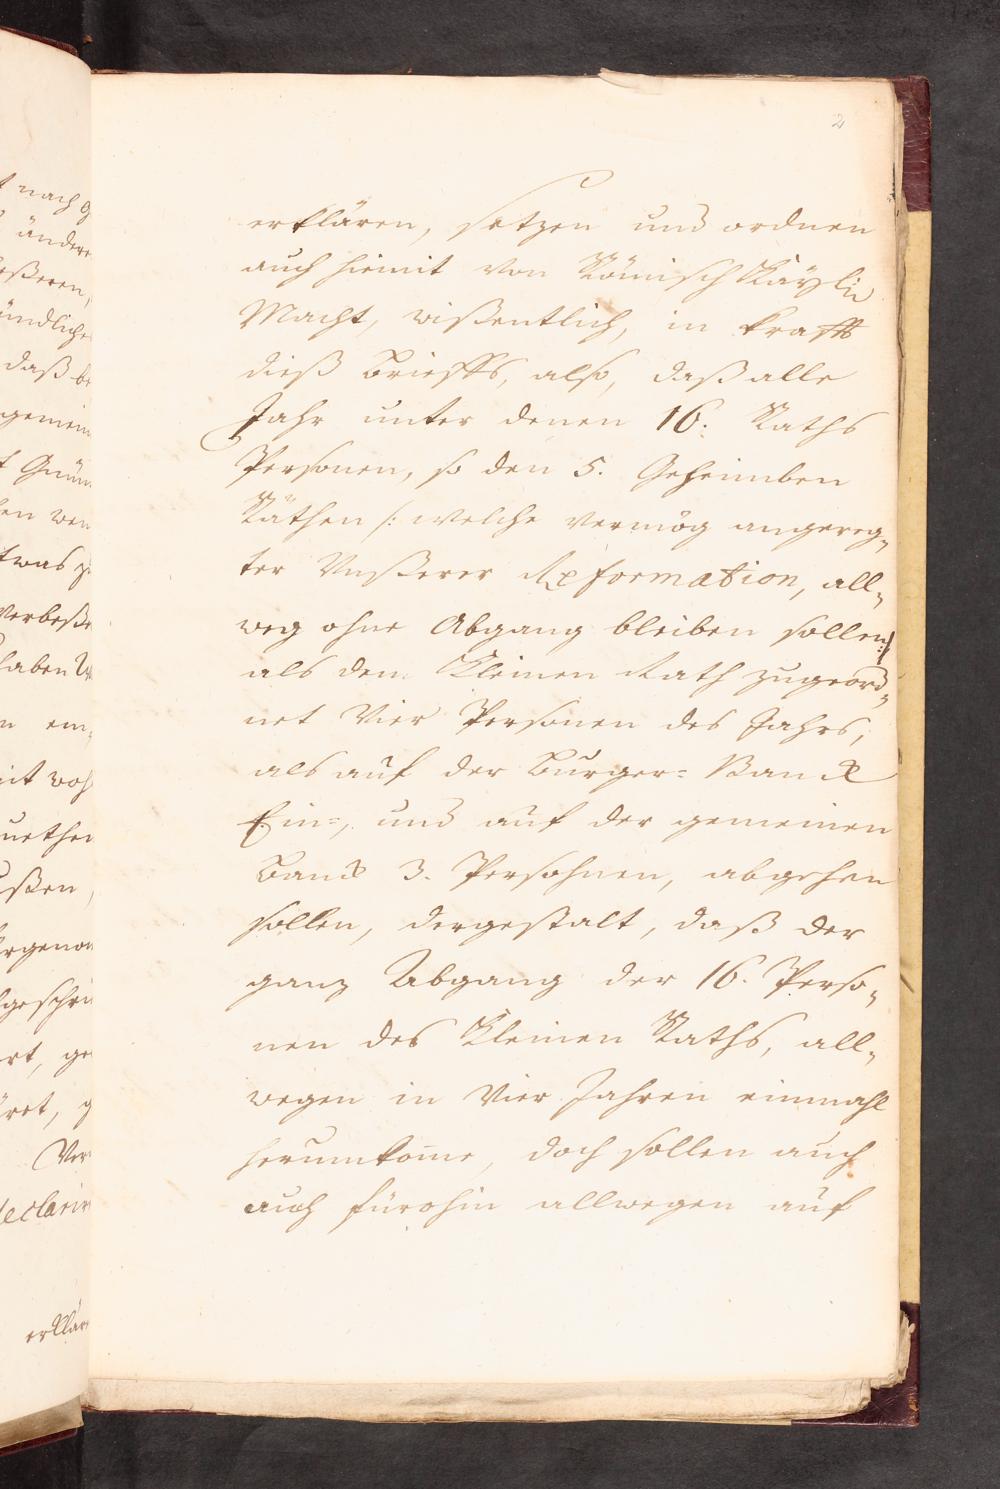 2
erklären, setzen und ordnen
auch hiemit von Römisch Kaÿslr
Macht, wißentlich, in krafft
dieß Brieffs, also, daß alle
Jahr unter denen 16. Raths
Personen, so den 5. Geheimben
Räthen /: welche vermög angereg„
ter Unßerer Reformation, all„
weg ohne Abgang bleiben sollen :/
als dem Kleinen Rath zugeord„
net Vier Personen des Jahrs,
als auf der Burger= Banck
Ein=, und auf der gemeinen
Banck 3. Persohnen, abgehen
sollen, dergestalt, daß der
ganz Abgang der 16. Perso„
nen des Kleinen Raths, all„
wegen in Vier Jahren einmahl
herumkom̄e, doch sollen auch
auch fürohin allwegen auf
nach
ändere
daß
gemein
etwas
Verbeße
haben
mit woh
ußen,
declarir
erklär